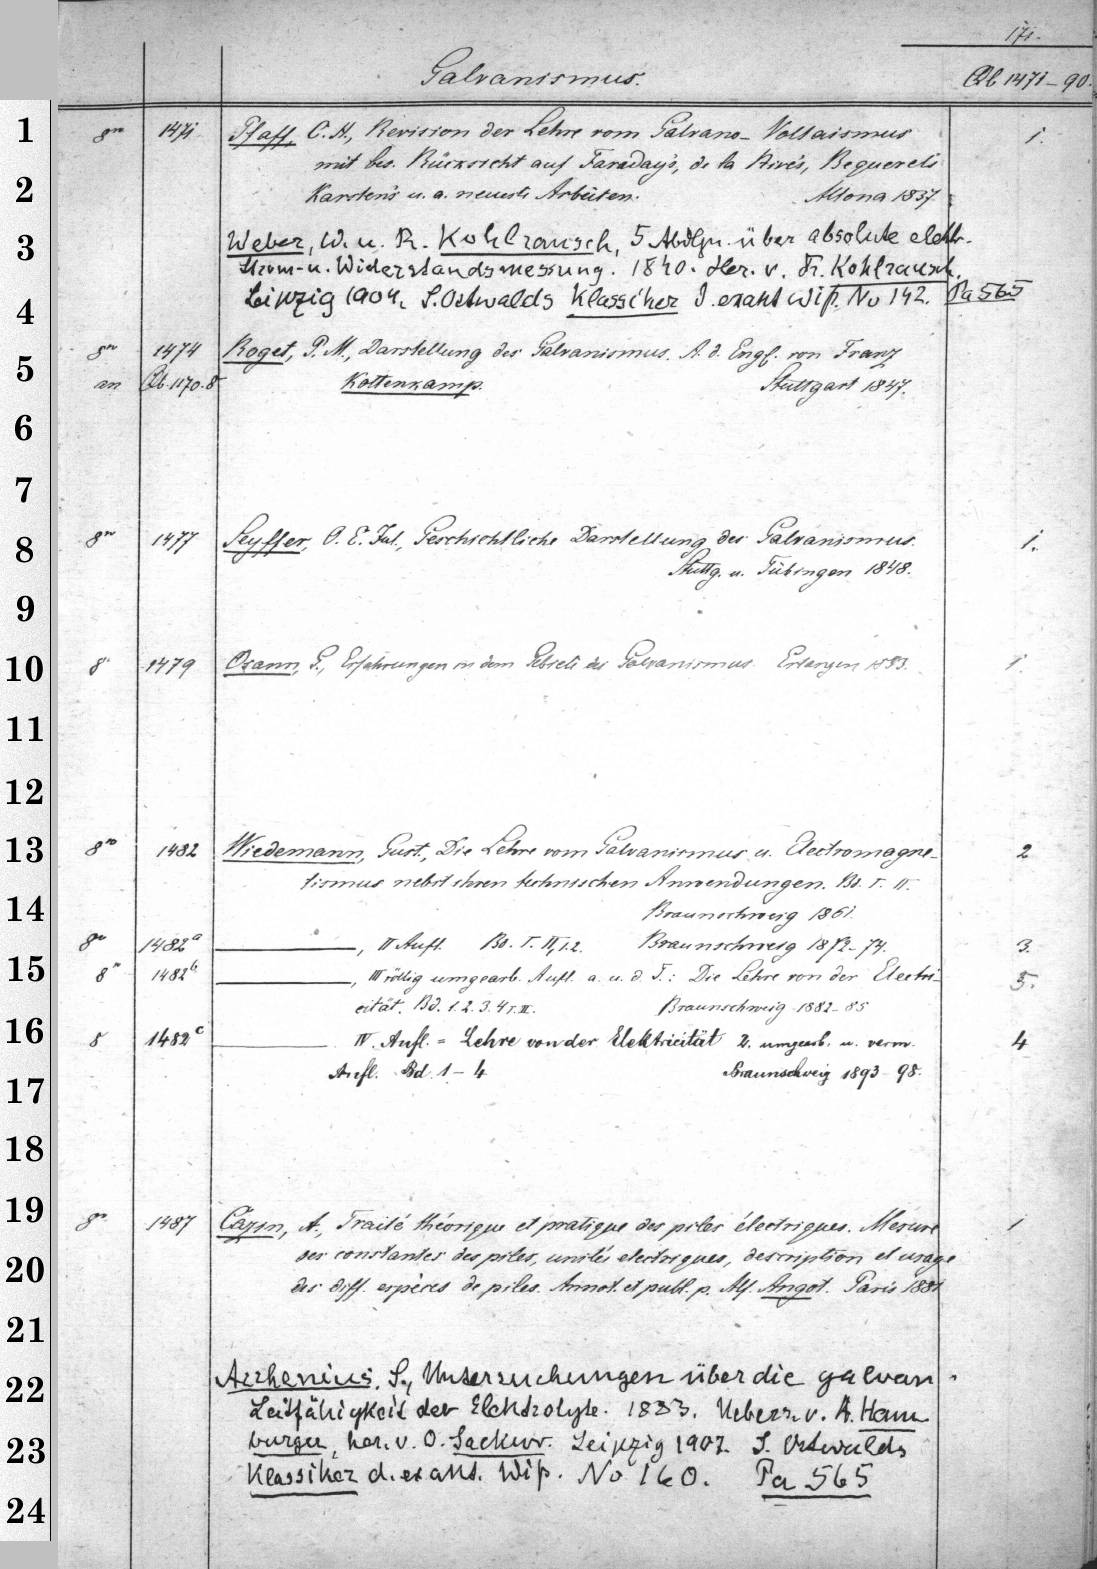 171.
Galvanismus. Qb 1471–90.
1 8vo 1471 Pfaff, C. H., Revision der Lehre vom Galvano-Voltaismus 1.
mit bes. Rücksicht auf Faraday's, de la Rive's, Bequerels
2 Karsten's u. a. neueste Arbeiten. Altona 1837.
3 Weber, W. u. R. Kohlrausch, 5 Abdlgn. über absolute elektr.
Strom- u. Widerstandsmessung. 1840. Her. v. Fr. Kohlrausch.
4 Leipzig 1904. S. Ostwalds Klassiker d. exakt Wiss. No 142. Pa 565
5 8vo 1474 Roget, P. M., Darstellung des Galvanismus. A. d. Engl. von Franz
an Qb. 1170. 8° Kottenkamp. Stuttgart 1847.
6
7
8 8vo 1477 Seyffer, O. E. Jul., Geschichtliche Darstellung des Galvanismus. 1.
Stuttg. u. Tübingen 1848.
9
10 8° 1479 Osann, G., Erfahrungen in dem Gebiete des Galvanismus. Erlangen 1853. 1.
11
12
13 8vo 1482 Wiedemann, Gust., Die Lehre vom Galvanismus u. Electromagne- 2
tismus nebst ihren technischen Anwendungen. Bd. I. II.
14 Braunschweig 1861.
8vo 1482a ———, II Aufl. Bd. I. II,1.2. Braunschweig 1872–74. 3.
15 8° 1482b ———, III völlig umgearb. Aufl. a. u. d. T.: Die Lehre von der Electri- 5.
cität. Bd. 1. 2. 3. 4 I. II. Braunschweig 1882–85
16 8 1482c ——— IV. Aufl. = Lehre von der Elektricität 2. umgearb. u. verm. 4
17 Aufl. Bd. 1–4 Braunschweig 1893–98.
18
19 8vo 1487 Cazin, A., Traité théorique et pratique des piles électriques. Mesure 1
des constantes des piles, unités electriques, description et usage
20 des diff. espèces de piles. Annot. et publ. p. Alf. Angot. Paris 1881
21
22 Arrhenius, S., Untersuchungen über die galvan.
Leitfähigkeit der Elektrolyte. 1883. Uebers. v. A. Ham
23 burger, her. v. O. Sackur. Leipzig 1907. S. Ostwalds
Klassiker d. exakt. Wiss. No 160. Pa 565
24